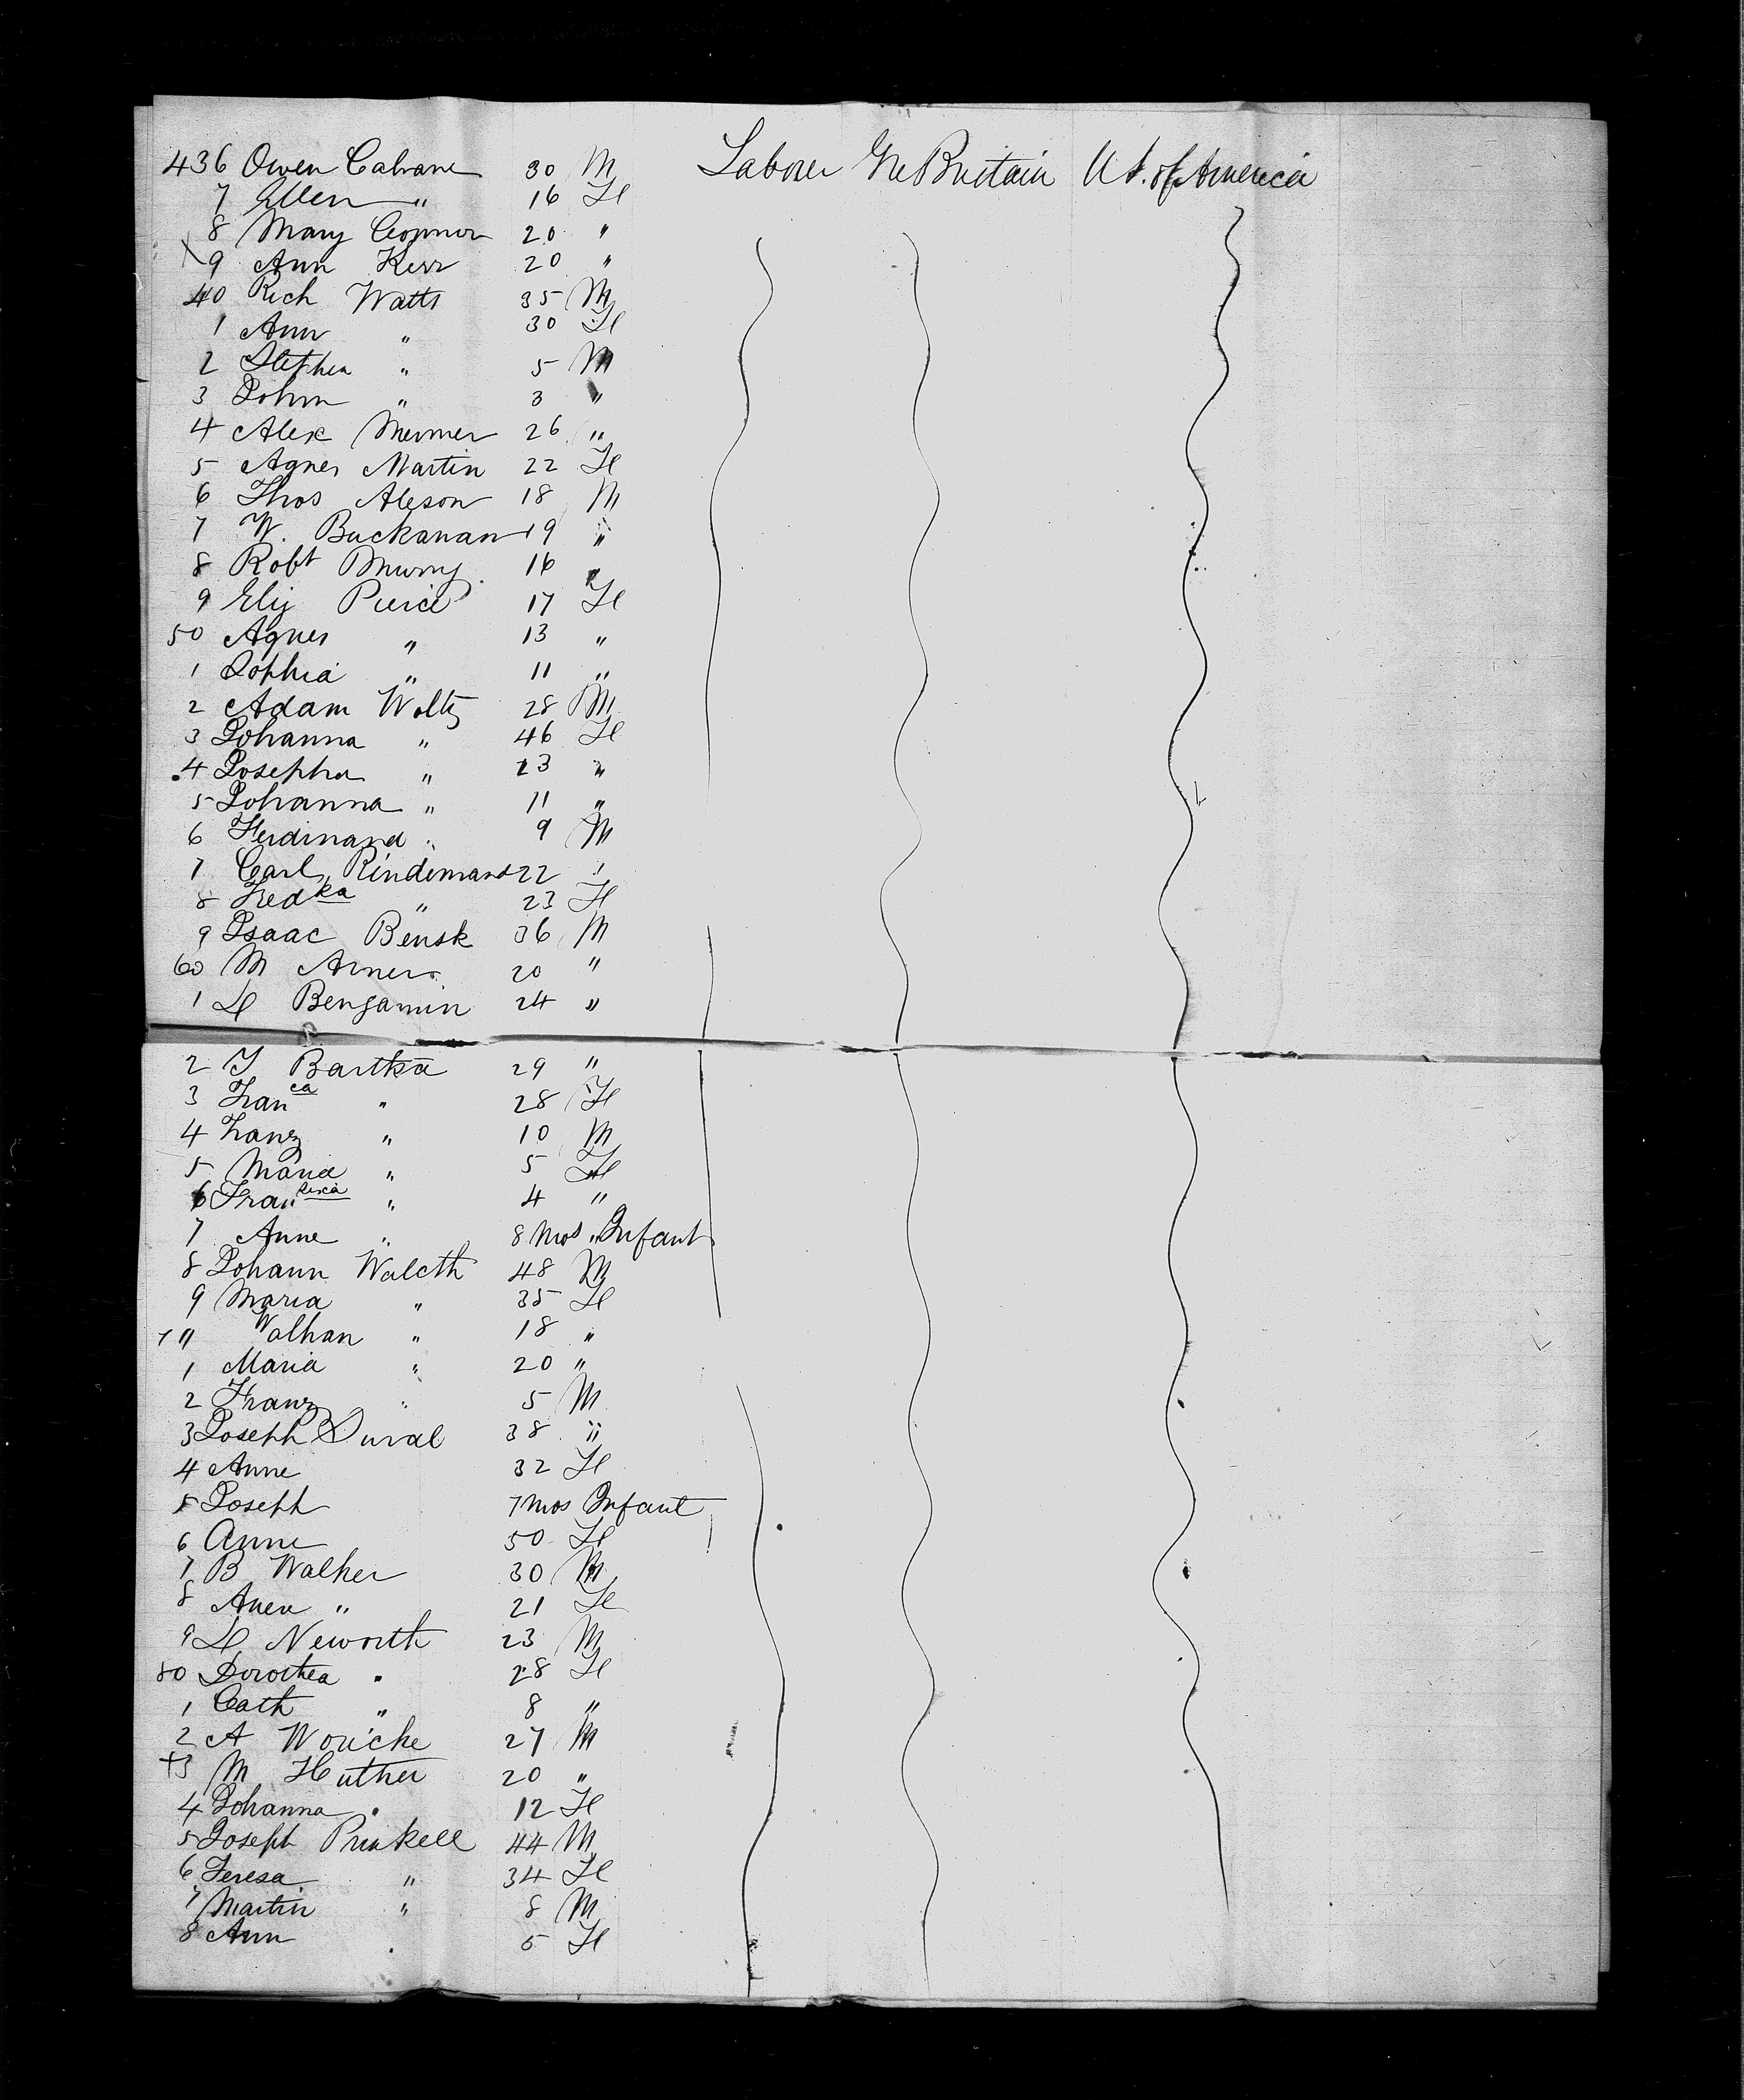 436 Owen Calvane 30 M Laborer Gr Britain U S. of America
7 Ellen " 16 F
8 Mary Connor 20 "
9 Ann Kerr 20 "
40 Rich Watts 35 M
1 Ann " 30 F
2 Stephen " 5 M
3 John " 3 "
4 Alex 26 "
5 Agnes Martin 22 F
6 Thos Aleson 18 M
7 W. Buckanan 19 "
8 Robt Murry 16 "
9 Eliz Pierce 17 F
50 Agnes " 13 "
1 Sophia " 11 "
2 Adam Woltz 28 M
3 Johanna " 46 F
4 Josepha " 23 "
5 Johanna " 11 "
6 Ferdinand " 9 M
7 Carl Rindemand 22 "
8 Fredka " 23 F
9 Isaac Bensk 36 M
60 M 20 "
1 L Benjamin 24 "
2 J Bartka 29 "
3 Franca " 28 F
4 Franz " 10 M
5 Maria " 5 F
6 Fran " 4 "
7 Anne " 8 mos Infant
8 Johann Walcth 48 M
9 Maria " 35 F
70 Walhan " 18 "
1 Maria " 20 "
2 Franz " 5 M
3 Joseph Duval 38 "
4 Anne 32 F
5 Joseph 7 mos Infant
6 Anne 50 F
7 B Walker 30 M
8 Anna " 21 F
9 L Neworth 23 M
80 Dorothea " 28 F
1 Cath " 8 "
2 A Woriche 27 M
+3 M Huther 20 "
4 Johanna " 12 F
5 Joseph Prinkell 44 M
6 Teresa " 34 F
7 Martin " 8 M
8 Ann " 5 F